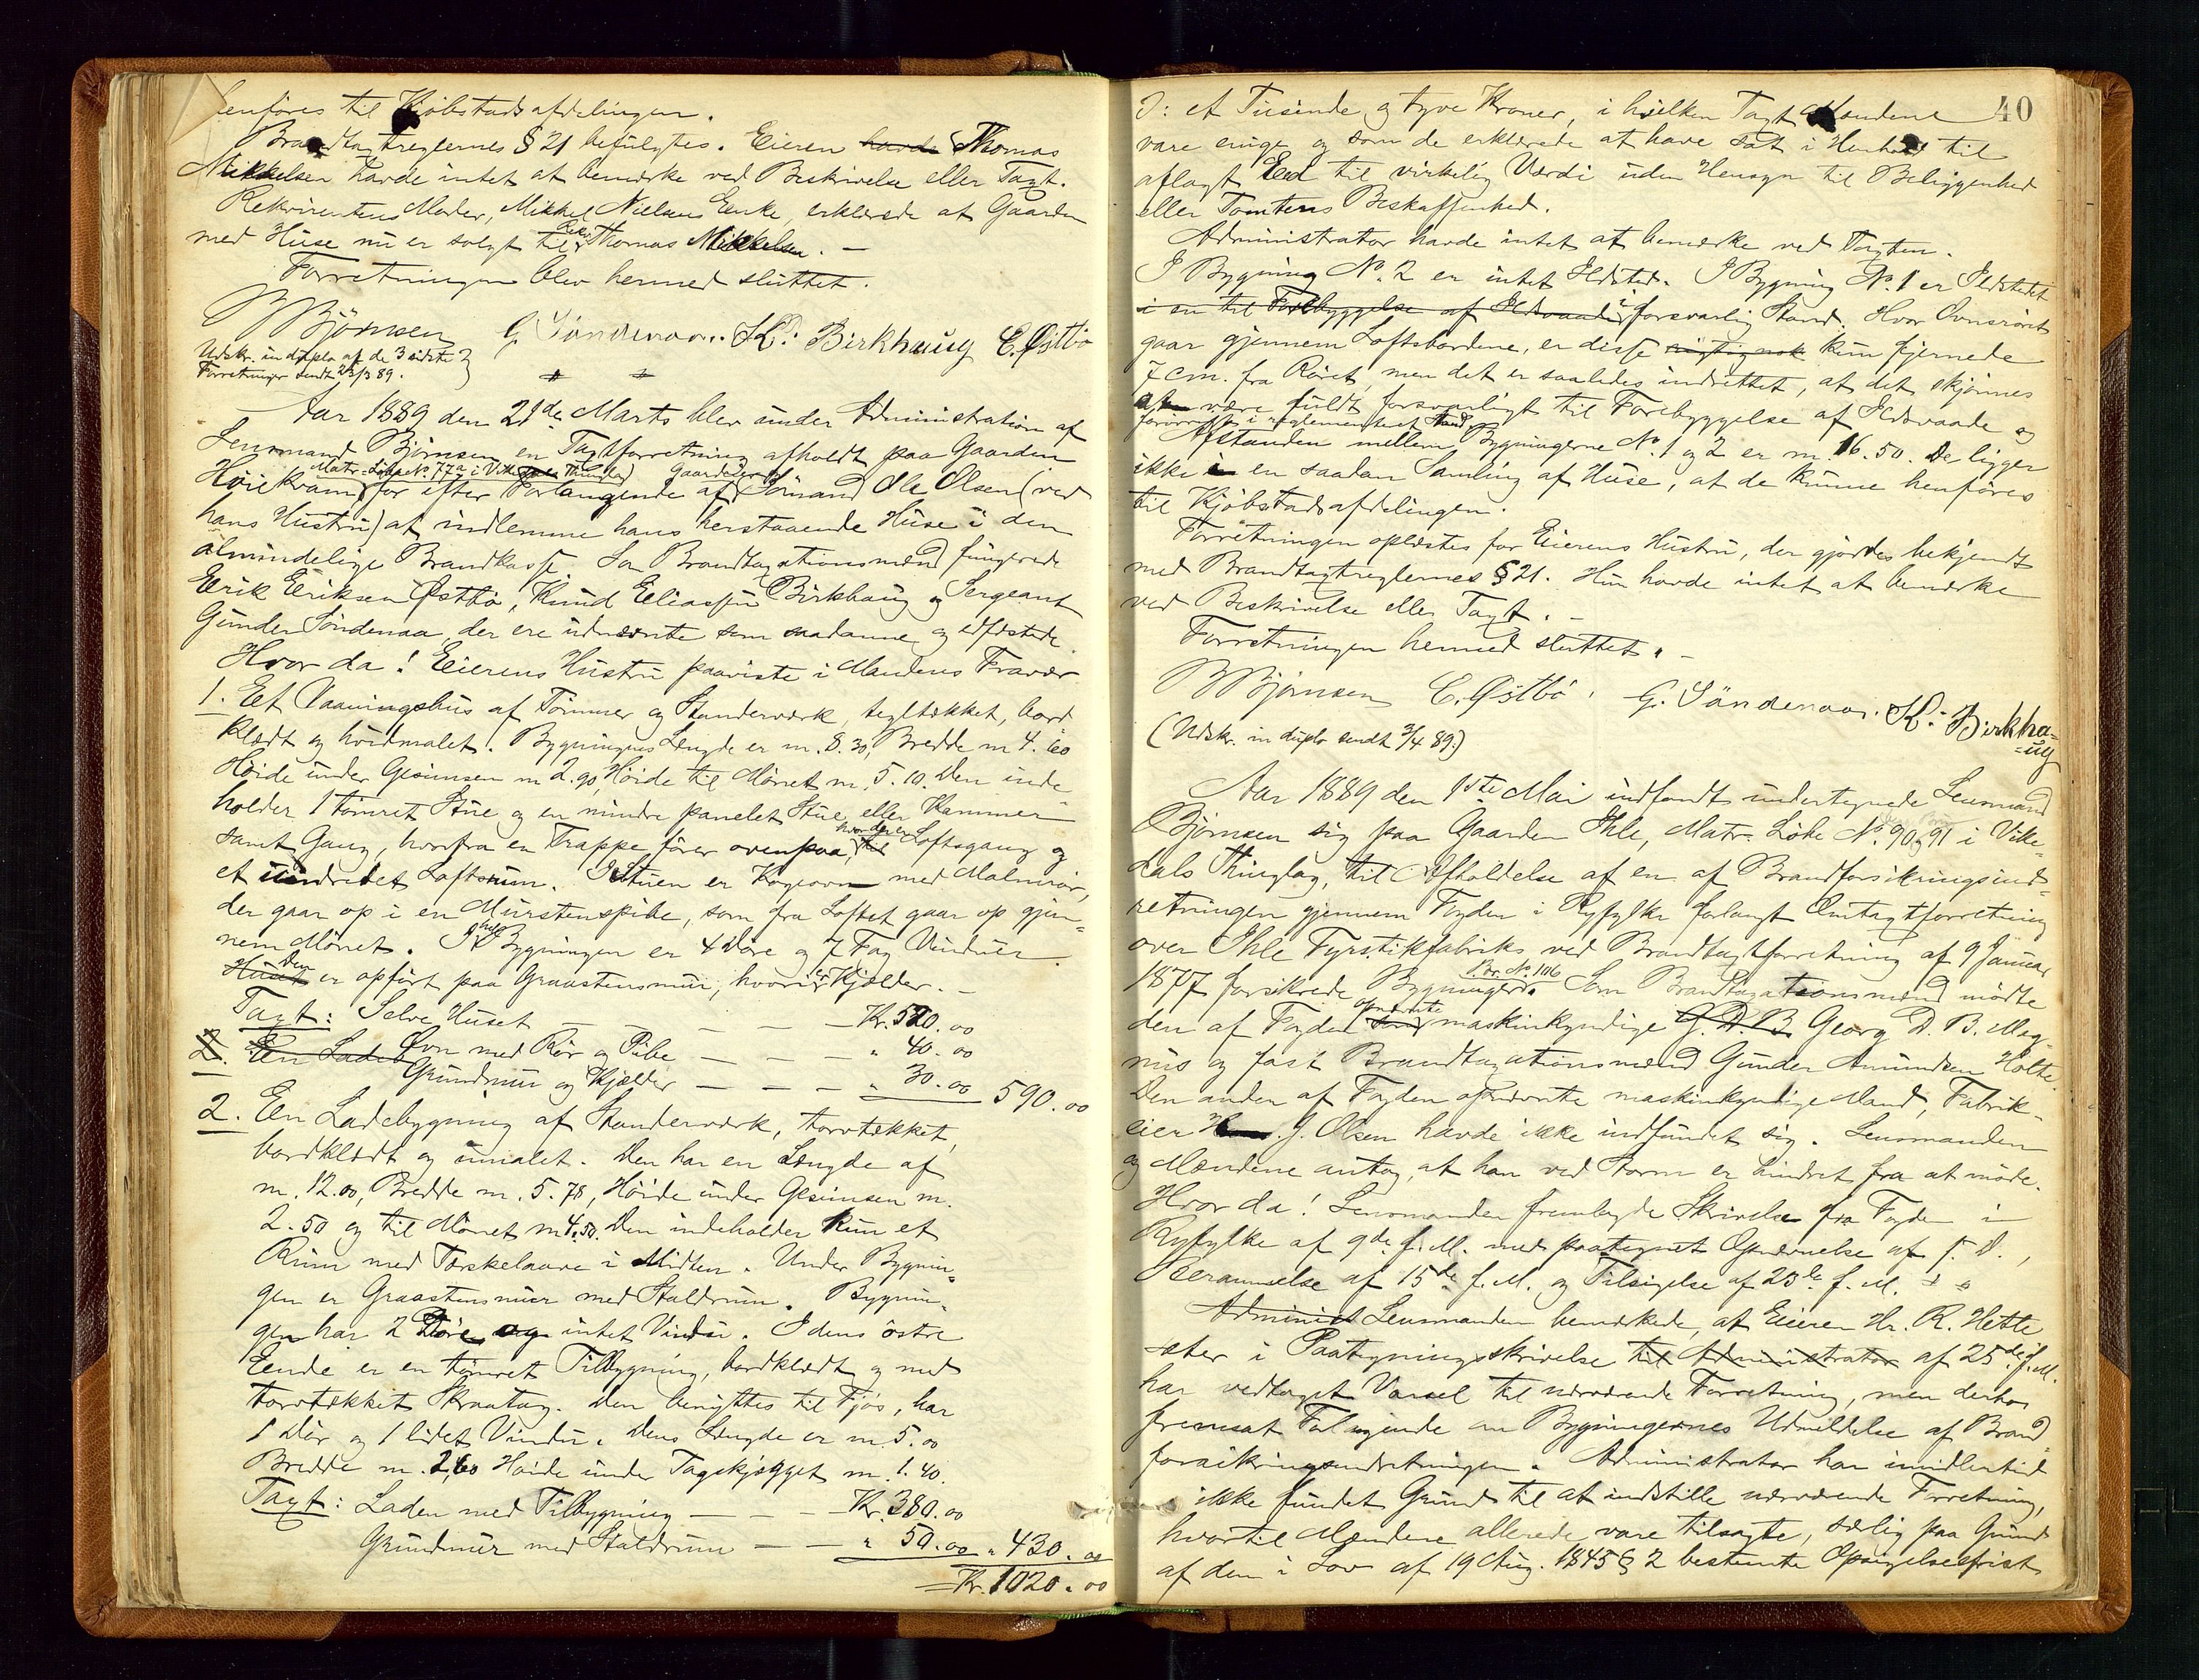 henføres til Kjøbstadsafdelingen.
Brandtaxtreglernes § 21 befulgtes. Eieren havde Thomas
Mikkelsen havde intet at bemærke ved Beskrivelse eller Taxt.
Rekvirentens Moder, Mikkel Nielsens Enke, erklærede at Gaarden
med Huse nu er solgt til Rekv. Thomas Mikkelsen. —
Forretningen blev hermed sluttet.
B Bjørnsen G. Søndenaa. K. Birkhaug E. Østbø
Udskr. in duplo af de 3 sidste
Forretninger sendt 23/3 89.
Aar 1889 den 21de Marts blev under Administration af
Lensmand Bjørnsen en Taxtforretning afholdt paa Gaarden
Matr. Løbe No. 77a i Vikedals Thinglag Gaardeier
Høiekvam for efter Forlangende af Sømand Ole Olsen (ved
hans Hustru) at indlemme hans herstaaende Huse i den
almindelige Brandkasse. Som Brandtaxationsmænd fungerede
Eerik Eeriksen Østbø, Knud Eeliassen Birkhaug og Sergeant
Gunder Søndenaa, der ere udnævnte som saadanne og edfæstede.
Hvorda! Eierens Hustru paaviste i Mandens Fravær
1. Eet Vaaningshus af Tømmer og Standerværk, tegltækket, bord-
klædt og hvidmalet. Bygningens Længde er m. 8.30, Bredde m 4.60
Høide under Gesimsen m 2.90, Høide til Mønet m. 5.10. Den inde-
holder 1 tømret Stue og en mindre panelet Stue eller Kammer
samt Gang, hvorfra en Trappe fører ovenpaa, til hvor der er Loftsgang og
et uindredet Loftsrum. I Stuen er Kogeovn med Malmrør,
der gaar op i en Murstenspibe, som fra Loftet gaar op gjen-
nem Mønet. Paa Bygningen er 4 Døre og 7 Fag Vinduer.
Huset Den er opført paa Graastensmur, hvori er Kjælder. —
Taxt: Selve Huset — — — — Kr. 520.00
2. Een Ladeb Ovn med Rør og Pibe — — — " 40.00
Grundmur og Kjælder — — — " 30.00 590.00
2. Een Ladebygning af Standerværk, torvtækket,
bordklædt og umalet. Den har en Længde af
m. 12.00, Bredde m. 5.78, Høide under Gesimsen m.
2.50 og til Mønet m 4.50. Den indeholder kun et
Rum med Tærskelaave i Midten. Under Bygnin-
gen er Graastensmur med Staldrum. Bygnin-
gen har 2 Døre og intet Vindu. I dens østre
Eende er en tømret Tilbygning, bordklædt og med
torvtækket Skraatag. Den benyttes til Fjøs, har
1 Dør og 1 lidet Vindu. Dens Længde er m. 5.00
Bredde m. 2,60 Høide under Tagskjægget m. 1.40.
Taxt: Laden med Tilbygning — — — Kr. 380.00
Grundmur med Staldrum — — " 50.00 " 430.00
Kr. 1020.00
40
ɔ: et Tusinde og tyve Kroner, i hvilken Taxt Mændene
vare enige og som de erklærede at have sat i Henhold til
aflagt Eed til virkelig Værdi uden Hensyn til Beliggenhed
eller Tomtens Beskaffenhed.
Administrator havde intet at bemærke ved Taxten.
I Bygning No. 2 er intet Ildsted. I Bygning No. 1 er Ildstedet
i en til Forebyggelse af Ildsvaade i forsvarlig Stand. Hvor Ovnsrøret
gaar gjennem Loftsbordene, er disse rigtignok kun fjernede
7 cm. fra Røret, men det er saaledes indrettet, at det skjønnes
at være fuldt forsvarligt til Forebyggelse af Ildsvaade og
forøvrigt i reglementeret Stand.
Afstanden mellem Bygningerne No. 1 og 2 er m. 16.50. De ligger
ikke i en saadan Samling af Huse, at de kunne henføres
til Kjøbstadsafdelingen.
Forretningen oplæstes for Eierens Hustru, der gjordes bekjendt
med Brandtaxtreglernes § 21. Hun havde intet at bemærke
ved Beskrivelse eller Taxt. —
Forretningen hermed sluttet. —
B Bjørnsen E. Østbø. G. Søndenaa. K. Birkha-
-ug
(Udskr. in duplo sendt 3/4 89.)
Aar 1889 den 1ste Mai indfandt undertegnede Lensmand
Bjørnsen sig paa Gaarden Ihle, Matr. Løbe No. 90 og 91 i Vike-
dals Thinglag, til Afholdelse af en af Brandforsikringsind-
retningen gjennem Fogden i Ryfylke forlangt Omtaxtforretning
over Ihle Fyrstikfabriks ved Brandtaxtforretning af 9 Januar
1877 forsikrede Bygninger Br. No. 106. Som Brandtaxationsmænd mødte
den af Fogden som opnævnte maskinkyndige G. D. B. Georg D. B. Mag-
nus og fast Brandtaxationsmand Gunder Amundsen Holte.
Den anden af Fogden opnævnte maskinkyndige Mand, Fabrik-
eier J. Olsen havde ikke indfundet sig. Lensmanden
og Mændene antog, at han ved Storm er hindret fra at møde.
Hvorda! Lensmanden fremlagde Skrivelse fra Fogden i
Ryfylke af 9de f. M. med paategnet Opnævnelse af s. D.,
Berammelse af 15de f. M. og Tilsigelse af 23de f. M.
Administ Lensmanden bemærkede, at Eieren Hr. R. Hette-
sæter i Paategningsskrivelse til Administrator af 25de f. M.
har vedtaget Varsel til nærværende Forretning, men derhos
fremsat Forlangende om Bygningernes Udmeldelse af Brand-
forsikringsindretningen. Administrator har imidlertid
ikke fundet Grund til at indstille nærværende Forretning,
hvortil Mændene allerede vare tilsagte, særlig paa Grund
af den i Lov af 19 Aug. 1845 § 2 bestemte Opsigelsesfrist